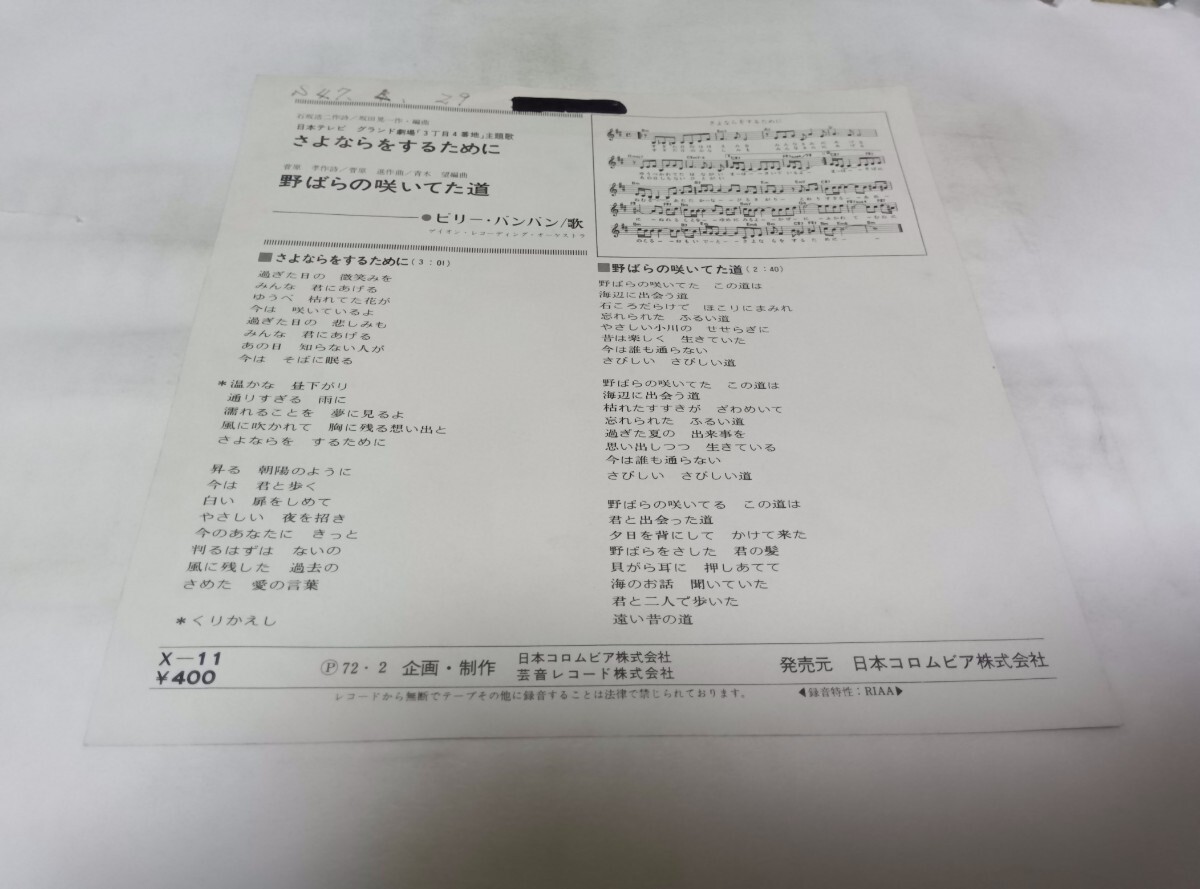 47. 4. 29
石坂浩二作詩/坂田晃一作・編曲
日本テレビ グランド劇場「3丁目4番地」主題歌
さよならをするために
菅原 孝作詩/菅原 進作曲/青木 望編曲
野ばらの咲いてた道
●ビリー・バンバン/歌
さよならをするために
■さよならをするために(3:01)
過ぎた日の 微笑みを
みんな 君にあげる
ゆうべ 枯れてた花が
今は 咲いているよ
過ぎた日の 悲しみも
みんな 君にあげる
あの日 知らない人が
今は そばに眠る
*温かな 昼下がり
通りすぎる 雨に
濡れることを 夢に見るよ
風に吹かれて 胸に残る想い出と
さよならを するために
昇る 朝陽のように
今は 君と歩く
白い 扉をしめて
やさしい 夜を招き
今のあなたに きっと
判るはずは ないの
風に残した 過去の
さめた 愛の言葉
*くりかえし
■野ばらの咲いてた道(2:40)
野ばらの咲いてた この道は
海辺に出会う道
石ころだらけで ほこりにまみれ
忘れられた ふるい道
やさしい小川の せせらぎに
昔は楽しく 生きていた
今は誰も通らない
さびしい さびしい道
野ばらの咲いてた この道は
海辺に出会う道
枯れたすすきが ざわめいて
忘れられた ふるい道
過ぎた夏の 出来事を
思い出しつつ 生きている
今は誰も通らない
さびしい さびしい道
野ばらの咲いてる この道は
君と出会った道
夕日を背にして かけて来た
野ばらをさした 君の髪
貝がら耳に 押しあてて
海のお話 聞いていた
君と二人で歩いた
遠い昔の道
X-11
¥400
Ⓟ72・2 企画・制作
日本コロムビア株式会社
芸音レコード株式会社
発売元 日本コロムビア株式会社
レコードから無断でテープその他に録音することは法律で禁じられております。
◀録音特性:RIAA▶